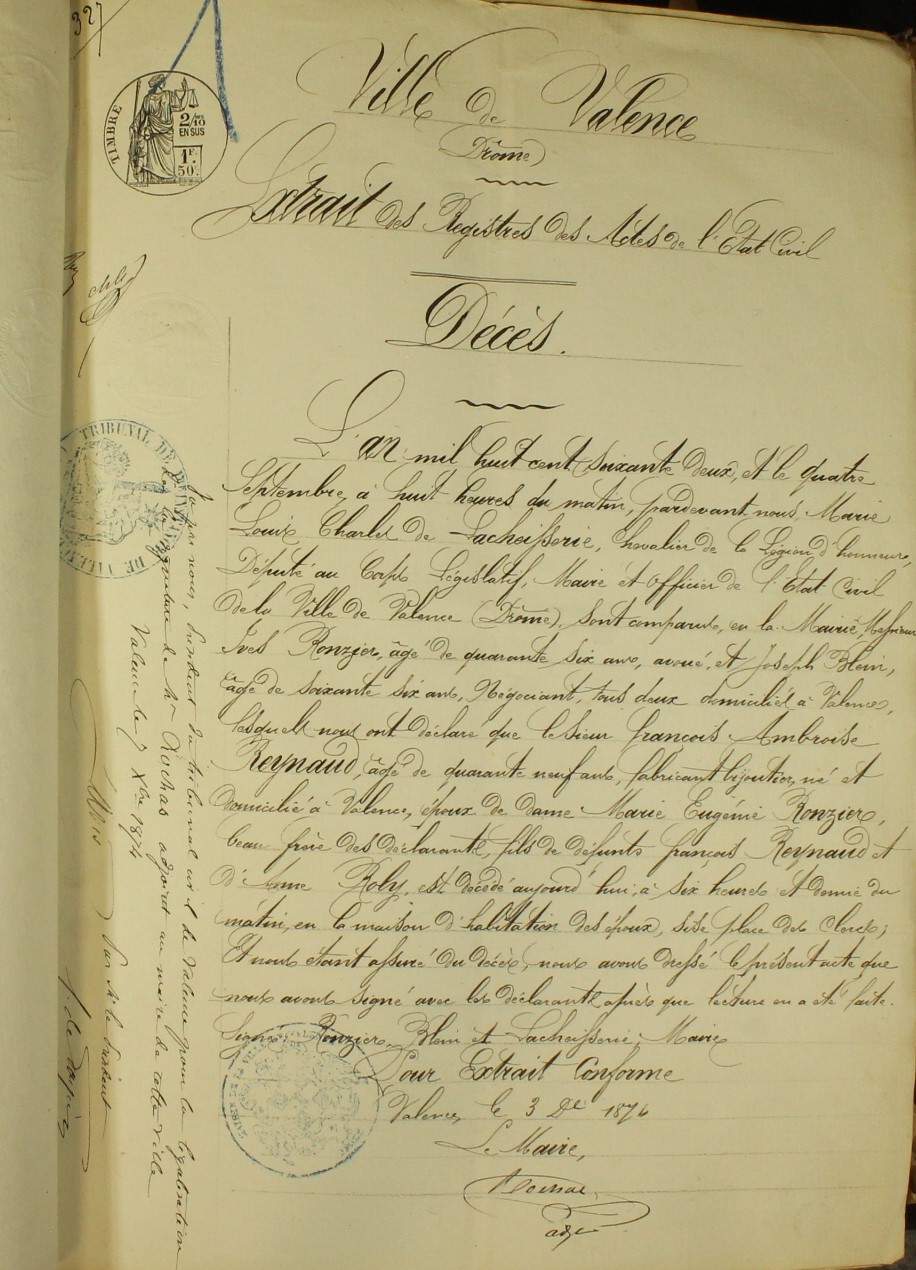 327
TIMBRE
2/10
EN SUS
1F.
50c.
Ville de Valence
(Drôme)
Extrait des Registres des Actes de l'Etat Civil
Décès.
L'an mil huit cent soixante deux, et le quatre
Septembre, à huit heures du matin, pardevant nous, Marie
Louis Charles de Lacheisserie, Chevalier de la Légion d'honneur,
Député au Corps Législatif, Maire et Officier de l'Etat Civil
de la Ville de Valence (Drôme), sont comparus, en la Mairie, Messieurs
Yves Ronzier, âgé de quarante six ans, avoué, et Joseph Blein,
âgé de soixante six ans, Négociant, tous deux domiciliés à Valence,
lesquels nous ont déclaré que le sieur François Ambroise
Reynaud, âgé de quarante neuf ans, fabricant bijoutier, né et
domicilié à Valence, époux de dame Marie Eugénie Ronzier,
beau frère des déclarants, fils de défunts françois Reynaud et
d'Anne Roby, est décédé aujourd'hui, à six heures et demie du
matin, en la maison d'habitation des époux, sise place des Clercs;
Et nous étant assuré du décès, nous avons dressé le présent acte que
nous avons signé avec les déclarants après que lecture en a été faite.
Signé Ronzier, Blein et Lacheisserie, Maire
Pour Extrait Conforme
Valence, le 3 Xbre 1874
Le Maire,
adj
TRIBUNAL DE
DE VALENCE
Vu par nous, Président du tribunal civil de Valence pour la légalisation
de la signature de Mr Rochas adjoint au maire de cette ville
Valence le 7 Xbre 1874